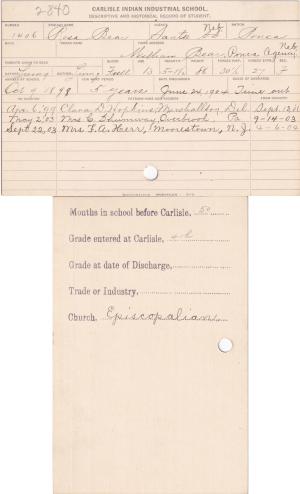 2840
CARLISLE INDIAN INDUSTRIAL SCHOOL.
DESCRIPTIVE AND HISTORICAL RECORD OF STUDENT.
NUMBER ENGLISH NAME AGENCY NATION
1406 Rosa Bear Santee Neb. Ponca
BAND INDIAN NAME HOME ADDRESS
William Bear, Ponca Agency, Neb.
Living Living Full 13 5-1½ 88 30½ 27 F
Oct 9 1898 5 years June 24, 1904 Time out
Apr. 6, '99 Clara D. Hopkins, Marshallton, Del. Sept.
May 2 '03 Mrs C. Shumway Overbrook, Pa 9-14-03
Sept 22, 03 Mrs. F. A. Kerr, Moorestown, N. J. 4-6-04
Months in school before Carlisle, 50
Grade entered at Carlisle, 4th
Grade at date of Discharge,
Trade or Industry.
Church. Episcopalian